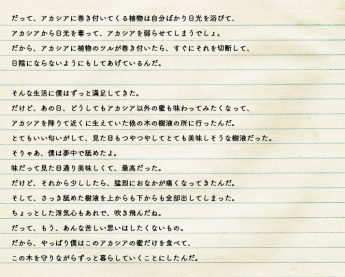 だって、アカシアに巻き付いてくる植物は自分ばかり日光を浴びて、
アカシアから日光を奪って、アカシアを弱らせてしまうでしょ。
だから、アカシアに植物のツルが巻き付いたら、すぐにそれを切断して、
日陰にならないようにもしてあげているんだ。
そんな生活に僕はずっと満足してきた。
だけど、あの日、どうしてもアカシア以外の蜜も味わってみたくなって、
アカシアを降りて近くに生えていた他の木の樹液の所に行ったんだ。
とてもいい匂いがして、見た目もつやつやしてとても美味しそうな樹液だった。
そりゃあ、僕は夢中で舐めたよ。
味だって見た目通り美味しくて、最高だった。
だけど、それから少ししたら、猛烈におなかが痛くなってきたんだ。
そして、さっき舐めた樹液を上からも下からも全部出してしまった。
ちょっとした浮気心もあれで、吹き飛んだね。
だって、もう、あんな苦しい思いはしたくないもの。
だから、やっぱり僕はこのアカシアの蜜だけを食べて、
この木を守りながらずっと暮らしていくことにしたんだ。